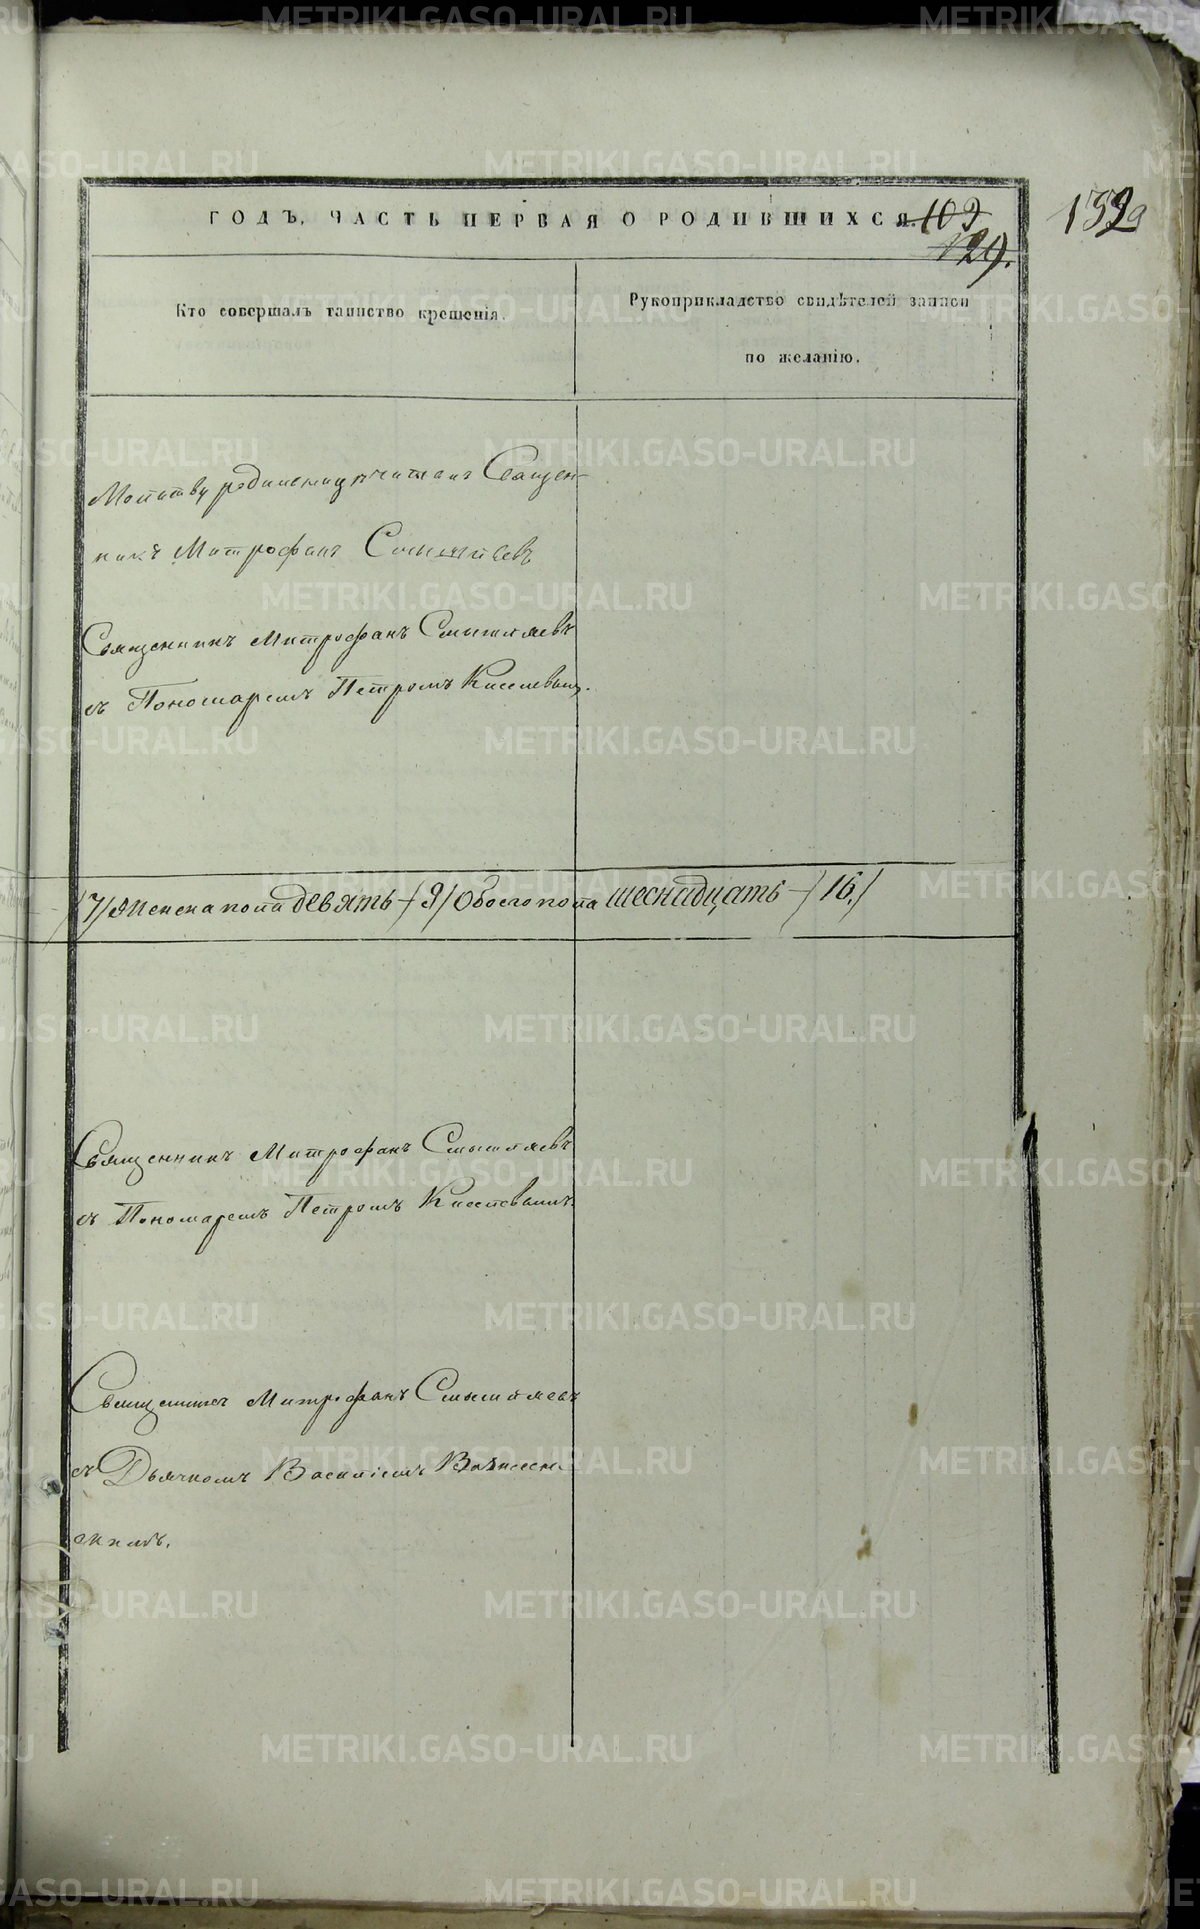 ГОДЪ, ЧАСТЬ ПЕРВАЯ О РОДИВШИХСЯ. 109
129.
1329
Кто совершалъ таинство крещенія.
Рукоприкладство свидѣтелей записи
по желанію.
Молитву родильницѣ читалъ Священ-
никъ Митрофанъ Смышляевъ
Священникъ Митрофанъ Смышляевъ
съ Пономаремъ Петромъ Киселевымъ.
/7/ Женска пола девять - /9/ Обоего пола шеснадцать - /16./
Священникъ Митрофанъ Смышляевъ
съ Пономаремъ Петромъ Киселевымъ.
Священникъ Митрофанъ Смышляевъ
съ Дьячкомъ Василіемъ Вознесен-
скимъ.
METRIKI.GASO-URAL.RU